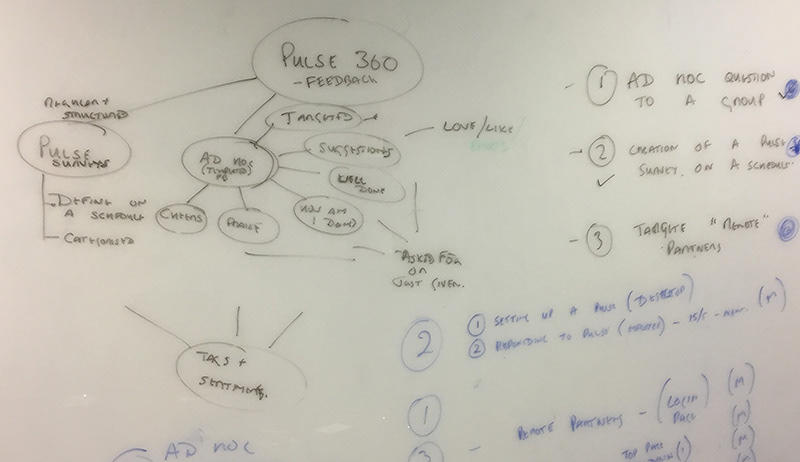 PULSE 360
- FEEDBACK
REGULAR +
STRUCTURED
PULSE
SURVEYS
- DEFINE ON
A SCHEDULE
- CATEGORISED
TARGETED
AD HOC
SUGGESTIONS
WELL
DONE
HOW AM
I DOING
CHEERS
PRAISE
LOVE/LIKE/
ASKED FOR
OR
JUST GIVEN.
TAGS +
SENTIMENT.
- 1 AD HOC QUESTION
TO A GROUP
- 2 CREATION OF A PULSE
SURVEY. ON A SCHEDULE.
- 3 TARGETE "REMOTE"
PARTNERS
2
1 SETTING UP A PULSE (DESKTOP)
2 RESPONDING TO PULSE - (M)
1
REMOTE PARTNERS - (LOGIN PAGE) (M)
3 - (M)
(M)
AD HOC